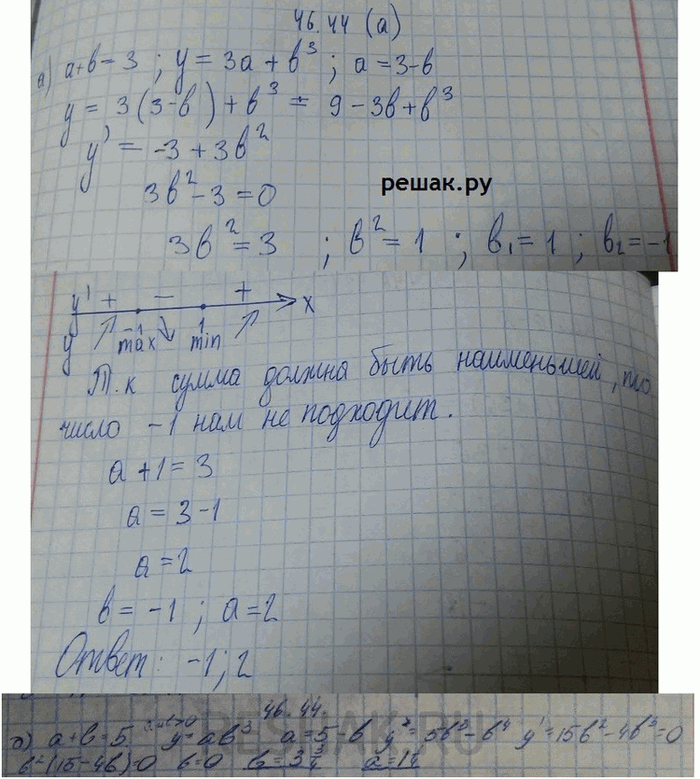 46.44 (а)
а) a+b=3 ; y = 3a + b³ ; a = 3-b
y = 3(3-b) + b³ = 9 - 3b + b³
y' = -3 + 3b²
3b² - 3 = 0
решак.ру
3b² = 3 ; b² = 1 ; b₁ = 1 ; b₂ = -1
y' + - + x
y -1 max 1 min
Т.к сумма должна быть наименьшей, то
число -1 нам не подходит.
a + 1 = 3
a = 3 - 1
a = 2
b = -1 ; a = 2
Ответ: -1; 2
RESHAK.RU
46.44.
б) a+b=5 y=ab³ a=5-b y=5b³-b⁴ y'=15b²-4b³=0
b²(15-4b)=0 b=0 b=3¾ a=1¼